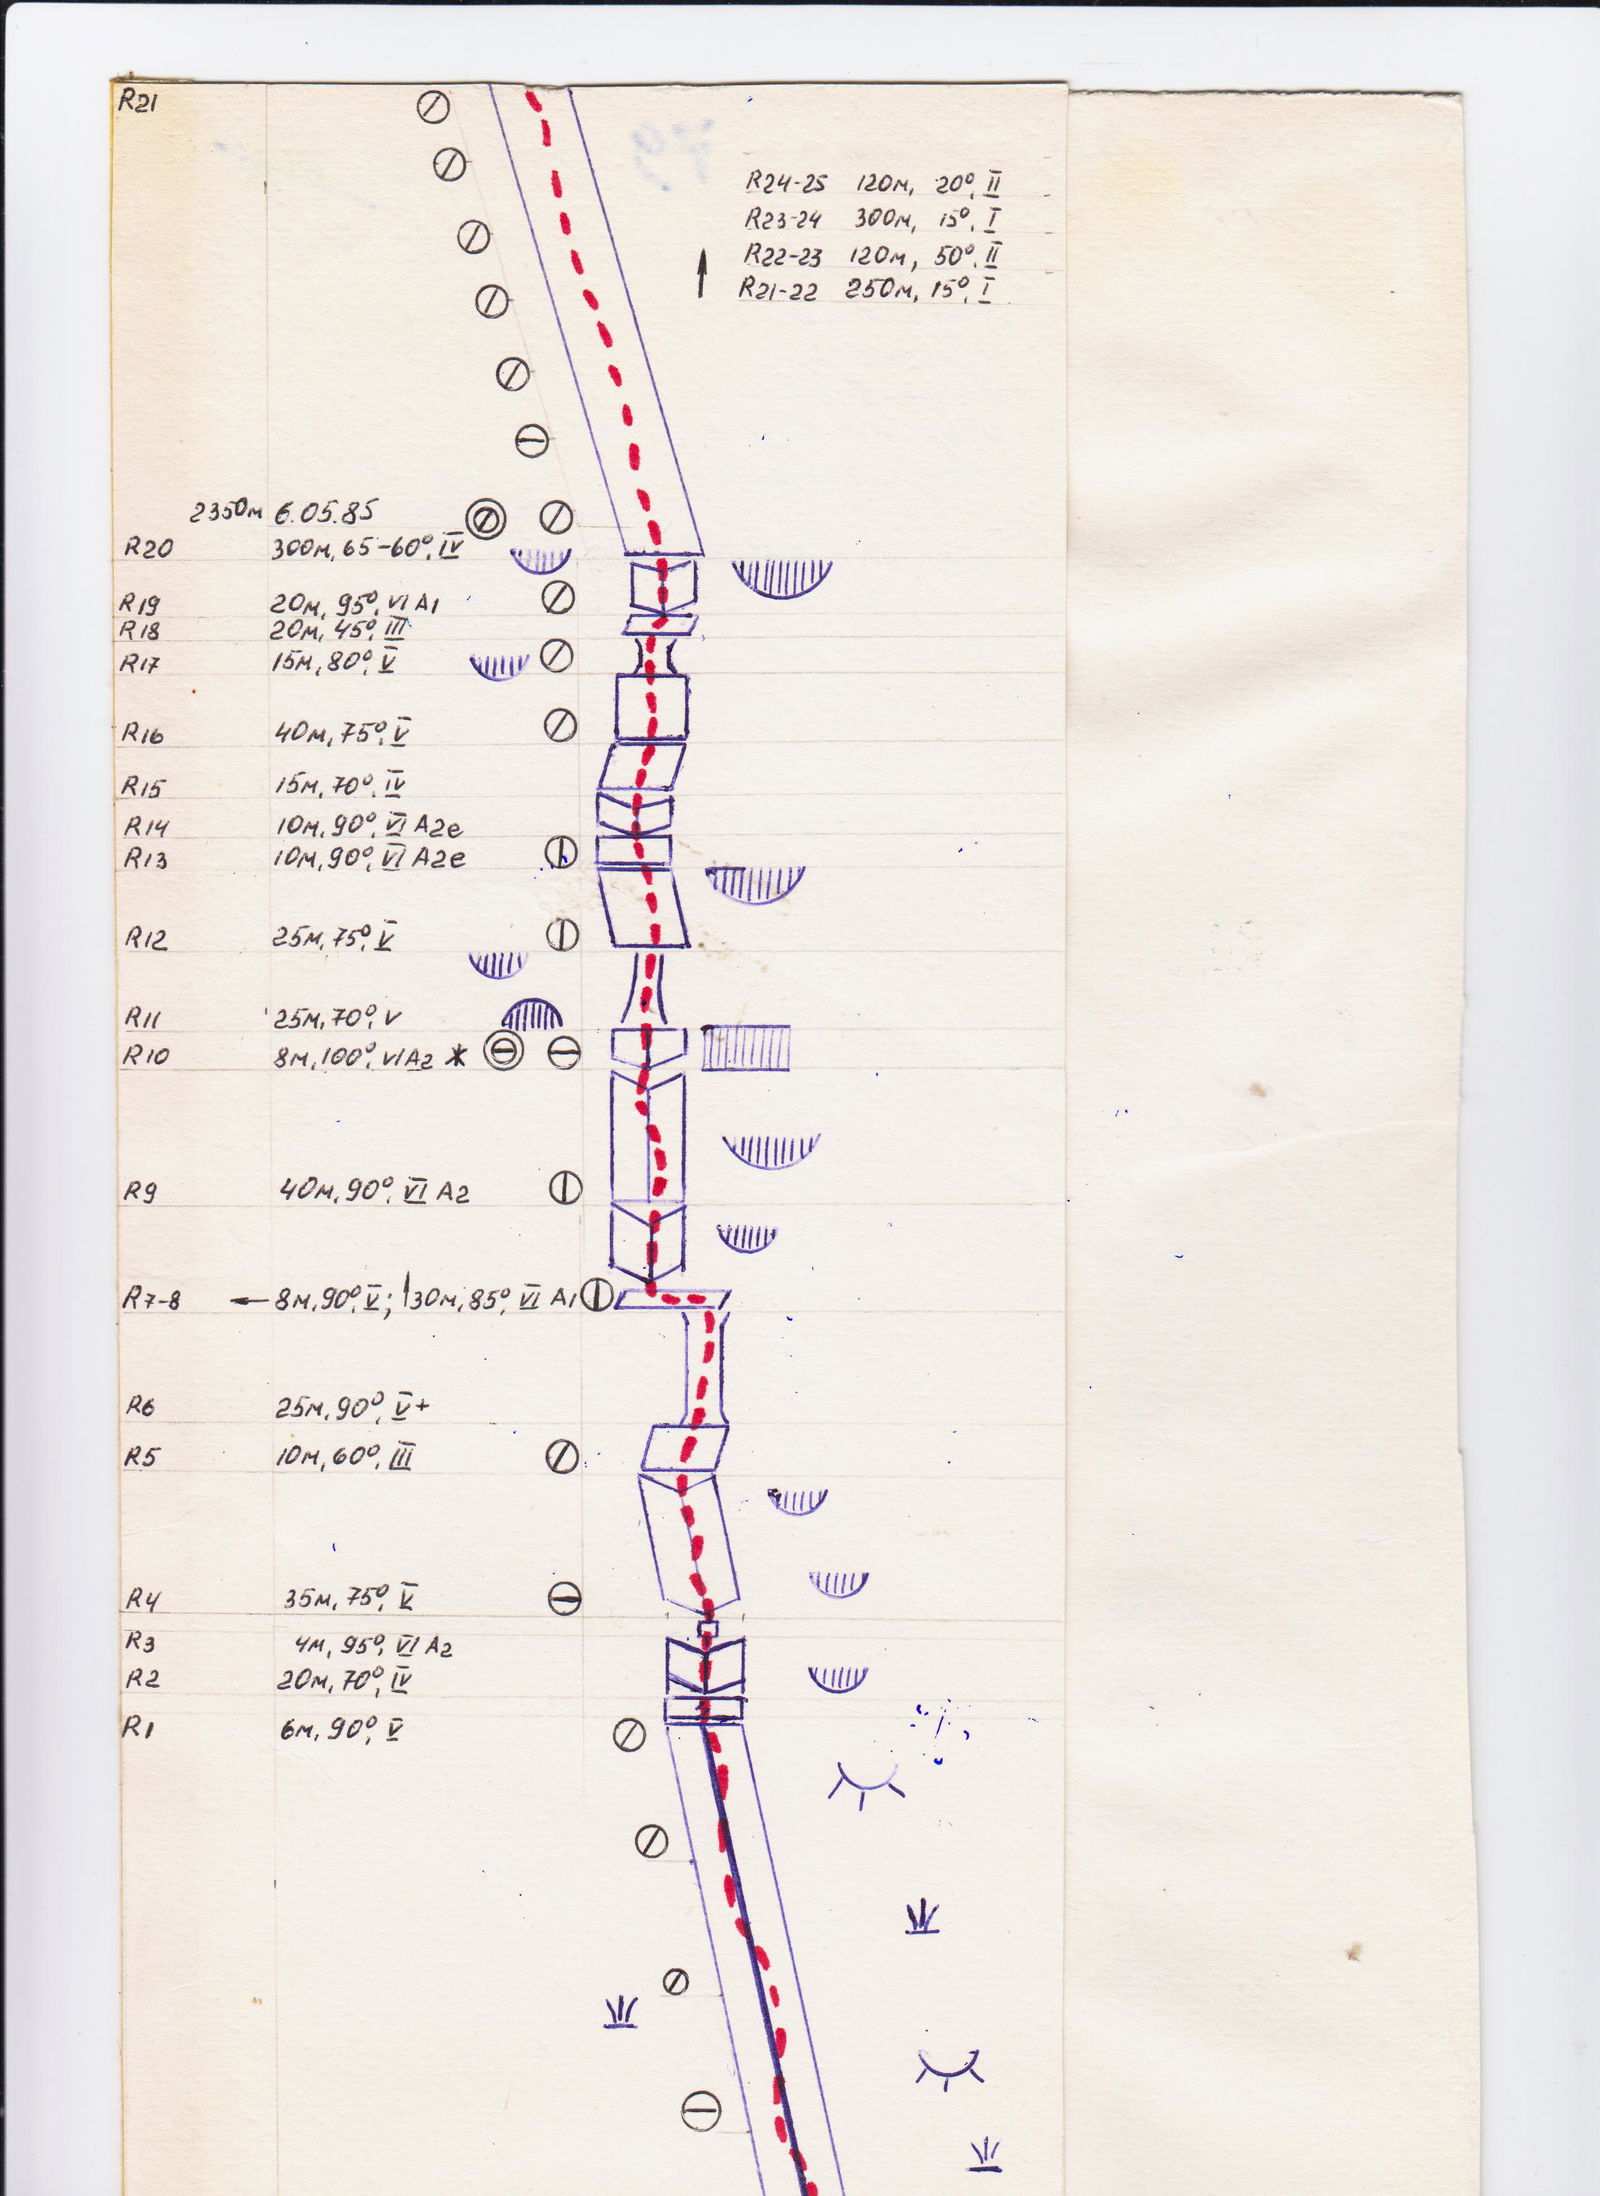 R21
R24-25 120м, 20°, II
R23-24 300м, 15°, I
R22-23 120м, 50°, II
R21-22 250м, 15°, I
2350м 6.05.85
R20 300м, 65-60°, IV
R19 20м, 95°, VI A1
R18 20м, 45°, III
R17 15м, 80°, V
R16 40м, 75°, V
R15 15м, 70°, IV
R14 10м, 90°, VI A2e
R13 10м, 90°, VI A2e
R12 25м, 75°, V
R11 25м, 70°, V
R10 8м, 100°, VI A2 *
R9 40м, 90°, VI A2
R7-8 ← 8м, 90°, V; 30м, 85°, VI A1
R6 25м, 90°, V+
R5 10м, 60°, III
R4 35м, 75°, V
R3 4м, 95°, VI A2
R2 20м, 70°, IV
R1 6м, 90°, V